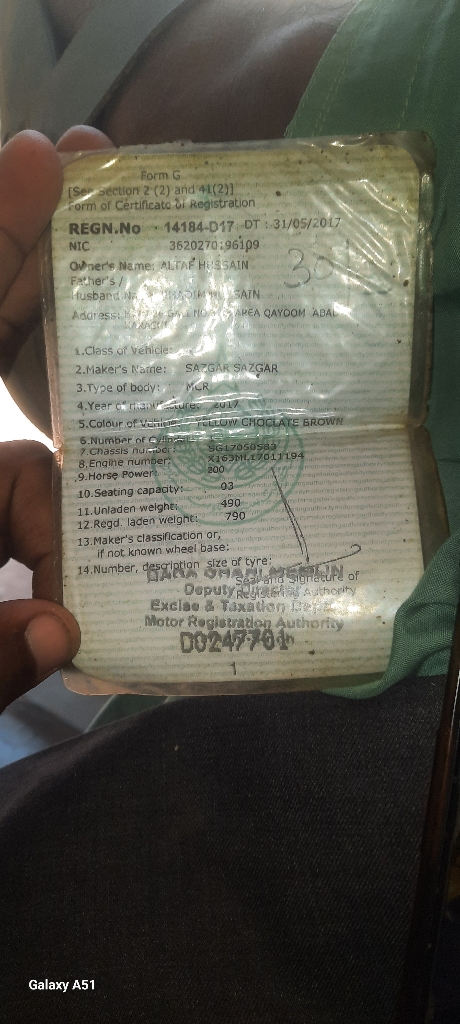 Form G
[See Section 2 (2) and 41(2)]
Form of Certificate of Registration
REGN.No 14184-D17 DT : 31/05/2017
NIC 3620270196109
Owner's Name: ALTAF HUSSAIN
Father's /
Husband Na
Address: AREA QAYOOM ABAD
KARACHI
1.Class of Vehicle:
2.Maker's Name: SAZGAR SAZGAR
3.Type of body: MCR
4.Year of manufacture: 2017
5.Colour of Vehicle: YELLOW CHOCLATE BROWN
6.Number of Cylinder
7.Chassis number: SG17050583
8.Engine number: X163ML17011194
9.Horse Power: 200
10.Seating capacity: 03
11.Unladen weight: 490
12.Regd. laden weight: 790
13.Maker's classification or,
if not known wheel base:
14.Number, description size of tyre:
Seal and Signature of
Deputy Director
Registering Authority
Excise & Taxation Dept.
Motor Registration Authority
D0247761
1
Galaxy A51